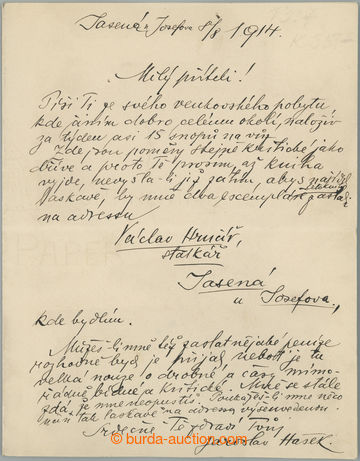 Jasená u Josefova 8/8 1914.
Milý příteli!
Píši Ti ze svého venkovského pobytu
kde činím dobro celému okolí, naloživ
za týden asi 15 snopů na vůz
Zde jsou poměry stejně kritické jako
dříve a proto Tě prosím, až kniha
vyjde, nevyšla-li již zatím, abys
laskavě, by mně dva exempláře zaslal
na adressu
Václav Hrnčíř,
statkář
Jasená
u Josefova,
kde bydlím.
Můžeš-li mně též zaslat nějaké peníze
rozhodně bych je přijal neboť je tu
velká nouze o drobné a časy mimo-
řádně bídné a kritické. Mně se stále
zdá, že mne neopustíš. Poukážeš-li mně něco
učiň tak laskavě na adresu výše uvedenou.
Srdečně Tě zdraví Tvůj
Jaroslav Hašek.
burda-auction.com